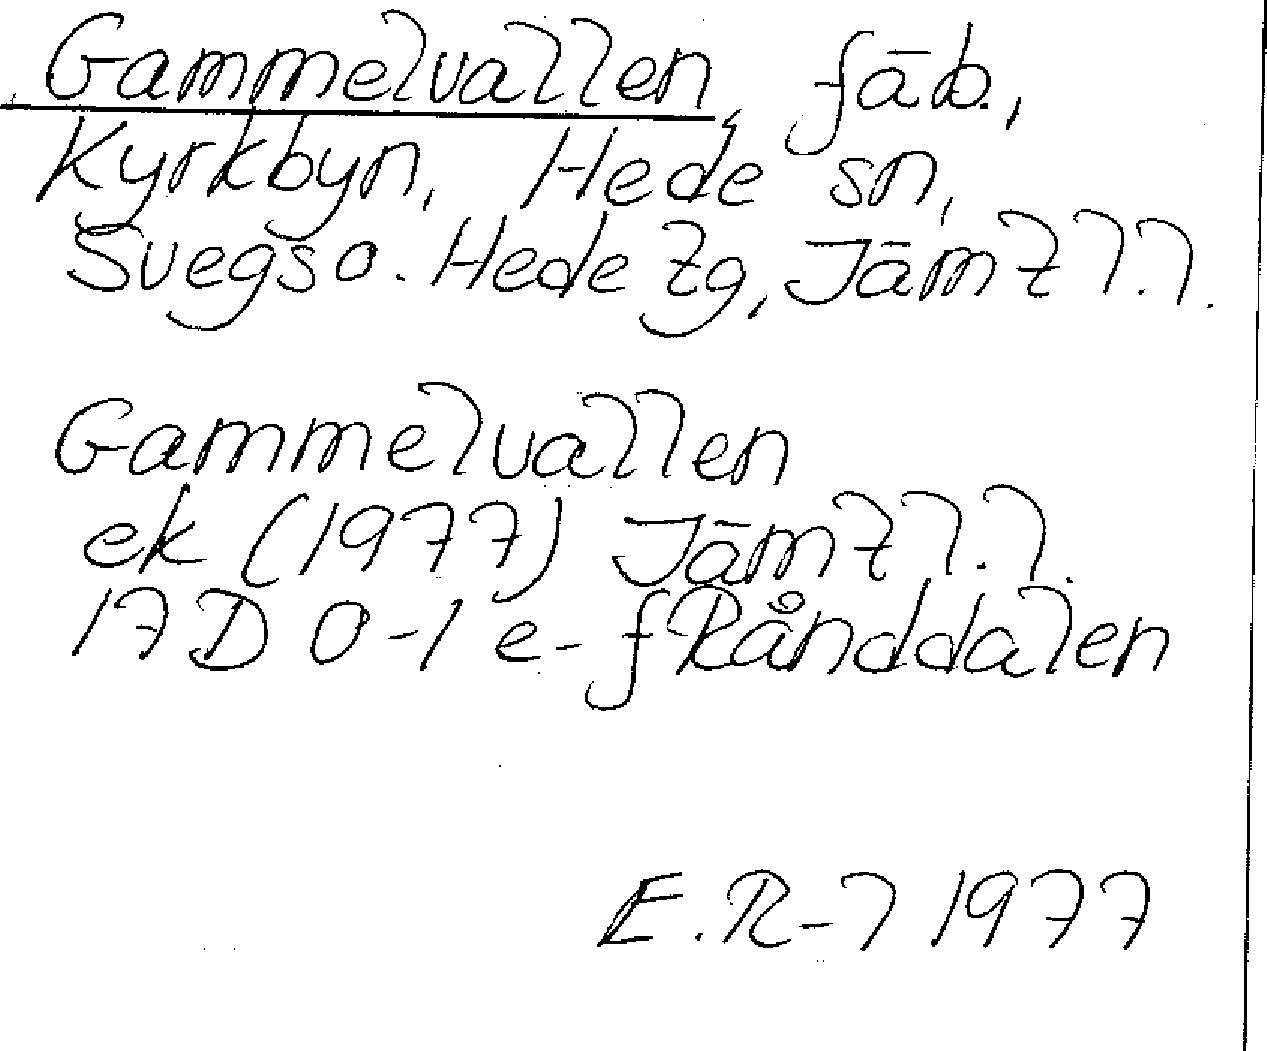 Gammelvallen, fäb.,
Kyrkbyn, Hede sn,
Svegs o. Hede tg, Jämtl.l.
Gammelvallen
ek (1977) Jämtl.l.
17D 0-1 e-f Rånddalen
E.R-l 1977